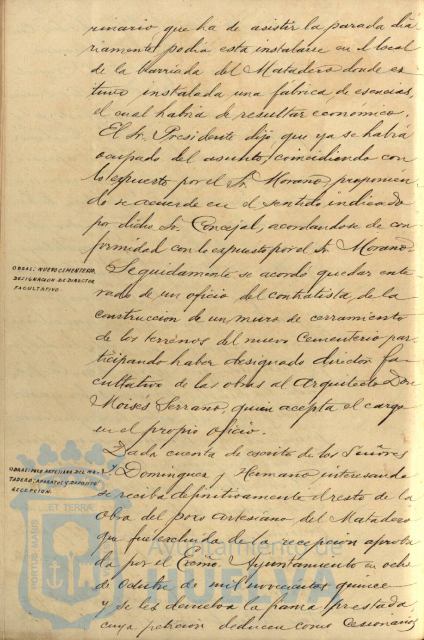 rinario que ha de asistir la parada dia-
riamente, podia esta instalarse en el local
de la barriada del Matadero donde es-
tuvo instalada una fabrica de esencias,
el cual habria de resultar economico.
El Sr. Presidente dijo, que ya se habia
ocupado del asunto, coincidiendo con
lo expuesto por el Sr. Morano, proponien-
do se acuerde en el sentido indicado
por dicho Sr. Concejal, acordandose de con-
formidad con lo expuesto por el Sr. Morano.
OBRAS: NUEVO CEMENTERIO,
DESIGNACION DE DIRECTOR
FACULTATIVO
Seguidamente se acordó quedar ente-
rado de un oficio del contratista, de la
construccion de un muro de cerramiento
de los terrenos del nuevo Cementerio par-
ticipando haber designado director fa-
cultativo de las obras al Arquitecto Don
Moisés Serrano, quien acepta el cargo
en el propio oficio.
OBRAS: POZO ARTESIANO DEL MA-
TADERO, APARATOS Y DEPOSITO
RECEPCION.
Dada cuenta de escrito de los Señores
Dominguez y Hermano interesando
se reciba definitivamente el resto de la
obra del pozo artesiano del Matadero
que fue excluida de la recepcion aproba-
da por el Excmo. Ayuntamiento en ocho
de Octubre de mil novecientos quince
y se les devuelva la fianza prestada,
cuya peticion deducen como Cesionarios
ET TERRA
PORTUS MARIS
Ayuntamiento de
HUELVA